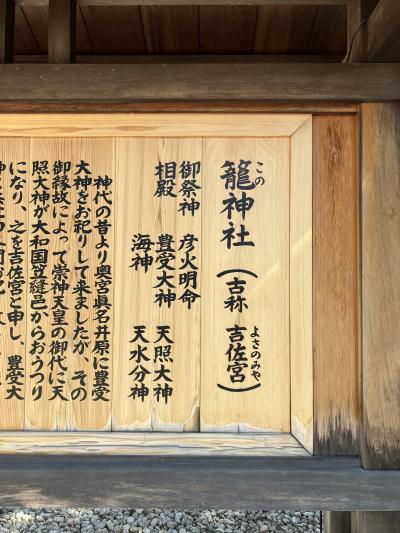 籠神社(古称 吉佐宮)
この
よさのみや
御祭神 彦火明命
相殿 豊受大神 天照大神
海神 天水分神
神代の昔より奥宮眞名井原に豊受
大神をお祀りして来ましたが その
御縁故によって崇神天皇の御代に天
照大神が大和国笠縫邑からおうつり
になり、之を吉佐宮と申し、豊受大